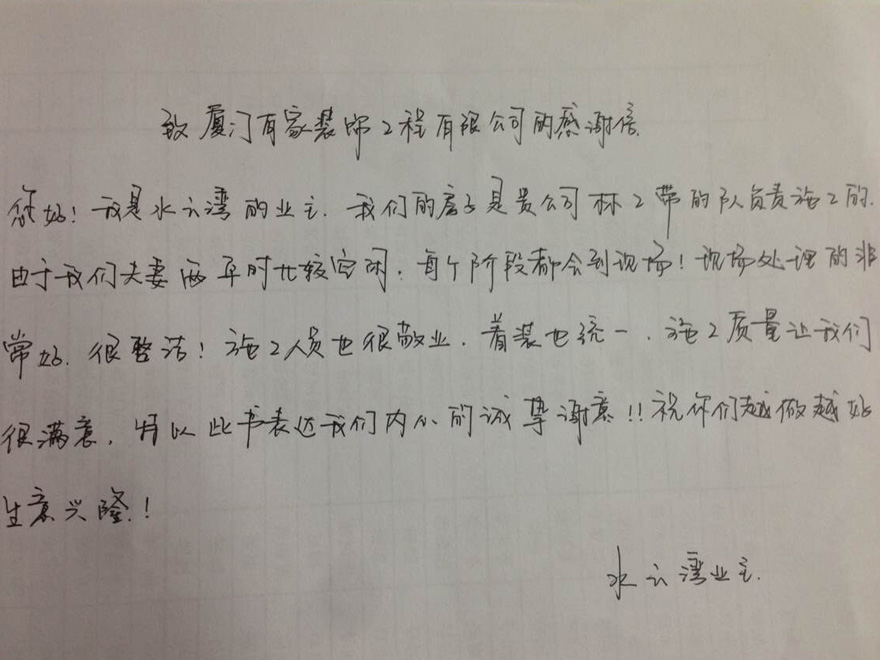 致厦门有家装饰工程有限公司的感谢信
您好!我是水云湾的业主.我们的房子是贵公司林工带的队负责施工的.
由于我们夫妻两平时比较空闲.每个阶段都会到现场!现场处理的非
常好.很整洁!施工人员也很敬业.着装也统一.施工质量让我们
很满意.特以此书表达我们内心的诚挚谢意!!祝你们越做越好
生意兴隆.!
水云湾业主.